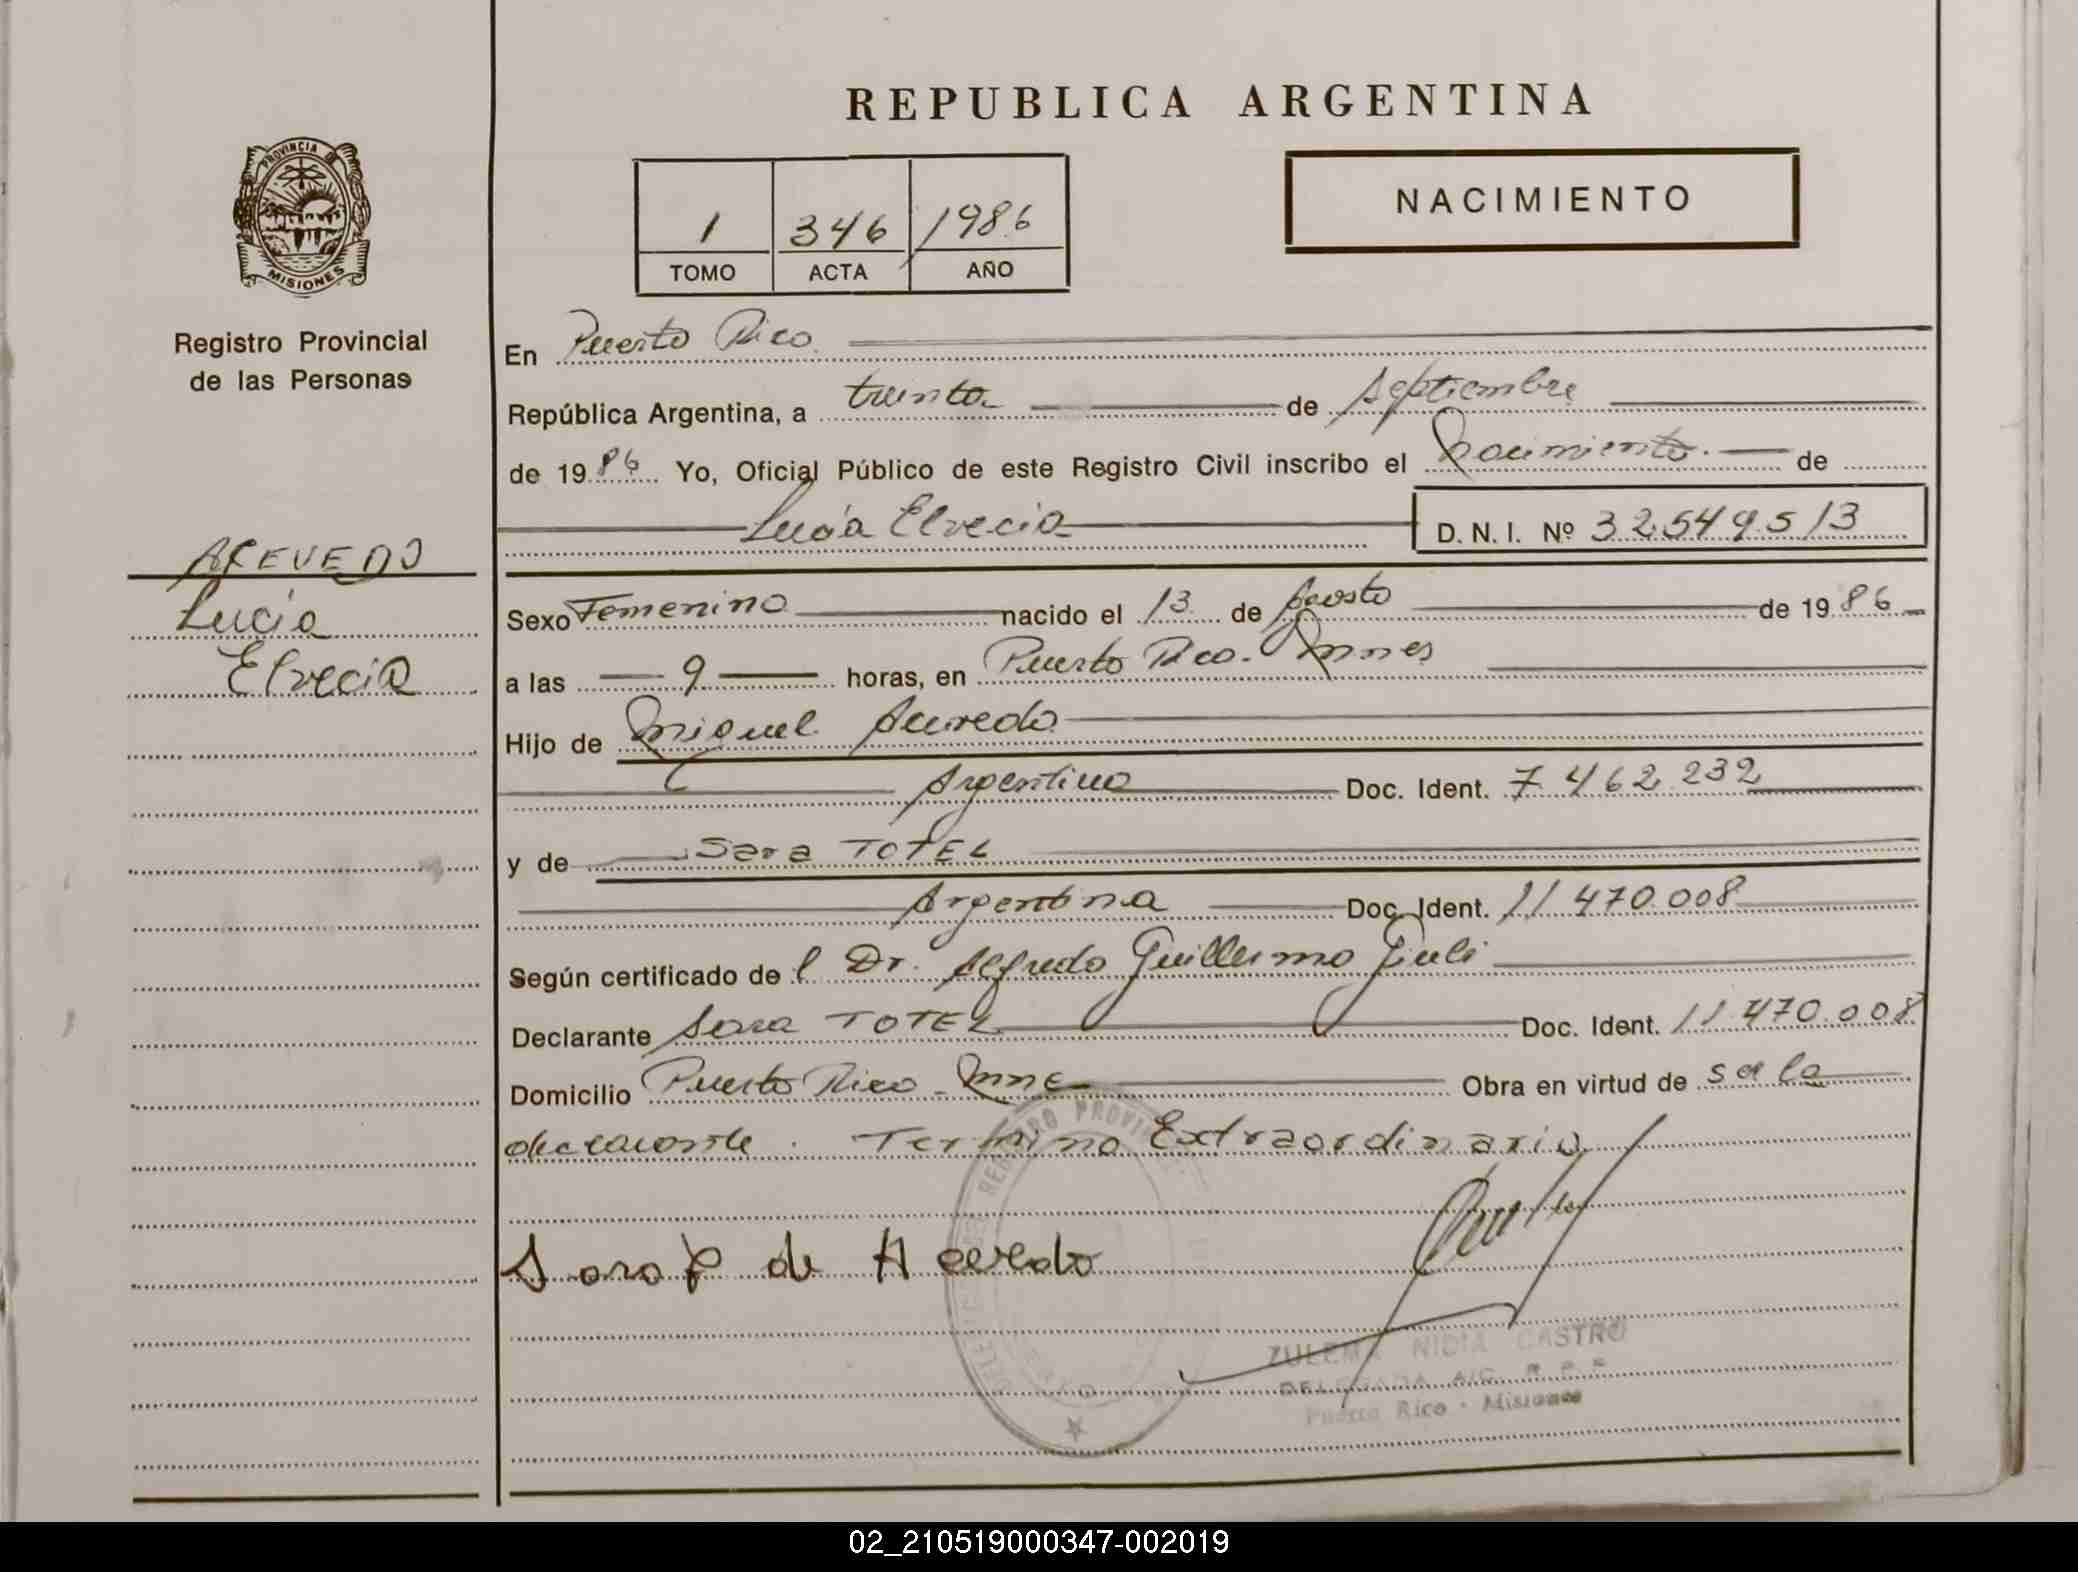 REPUBLICA ARGENTINA
PROVINCIA DE
MISIONES
Registro Provincial
de las Personas
1 346 1986
TOMO ACTA AÑO
NACIMIENTO
En Puerto Rico
República Argentina, a treinta de Septiembre
de 1986 Yo, Oficial Público de este Registro Civil inscribo el Nacimiento de
Lucía Elvecia D. N. I. Nº 32.549.513
ACEVEDO
Lucía
Elvecia
Sexo Femenino nacido el 13 de Agosto de 1986
a las 9 horas, en Puerto Rico - Mnes
Hijo de Miguel Acevedo
Argentino Doc. Ident. 7.462.232
y de Sara TOTEL
Argentina Doc. Ident. 11.470.008
Según certificado de l Dr. Alfredo Guillermo
Declarante Sara TOTEL Doc. Ident. 11.470.008
Domicilio Puerto Rico - Mnes Obra en virtud de ser la
declarante. Termino Extraordinario
Sara T de Acevedo
REGISTRO PROVINCIAL
ZULEMA NIDIA CASTRO
DELEGADA A/C. R. P. P.
Puerto Rico - Misiones
02_210519000347-002019